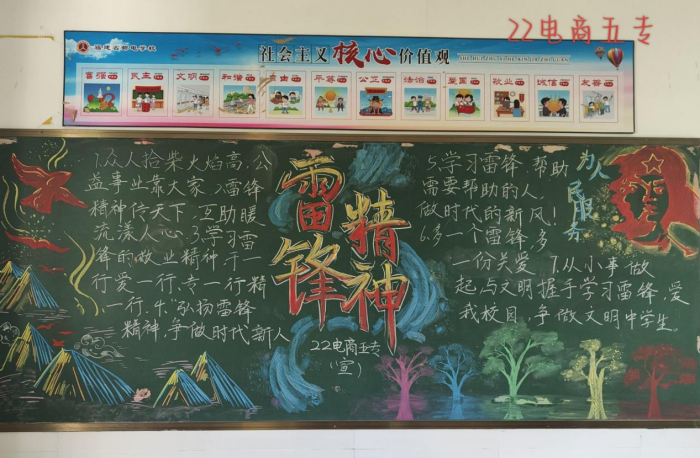 22电商五专
社会主义核心价值观
富强
民主
文明
和谐
自由
平等
公正
法治
爱国
敬业
诚信
友善
1.众人拾柴火焰高,公
益事业靠大家 2.雷锋
精神传天下,互助暖
流漾人心 3.学习雷
锋的敬业精神,干一
行爱一行、专一行精
一行、4."弘扬雷锋
精神,争做时代新人
雷锋
精神
22电商五专
(宣)
5.学习雷锋,帮助
需要帮助的人,
做时代的新风!
6.多一个雷锋,多
一份关爱 7.从小事做
起,与文明握手学习雷锋,爱
我校园,争做文明中学生。
为人民服务